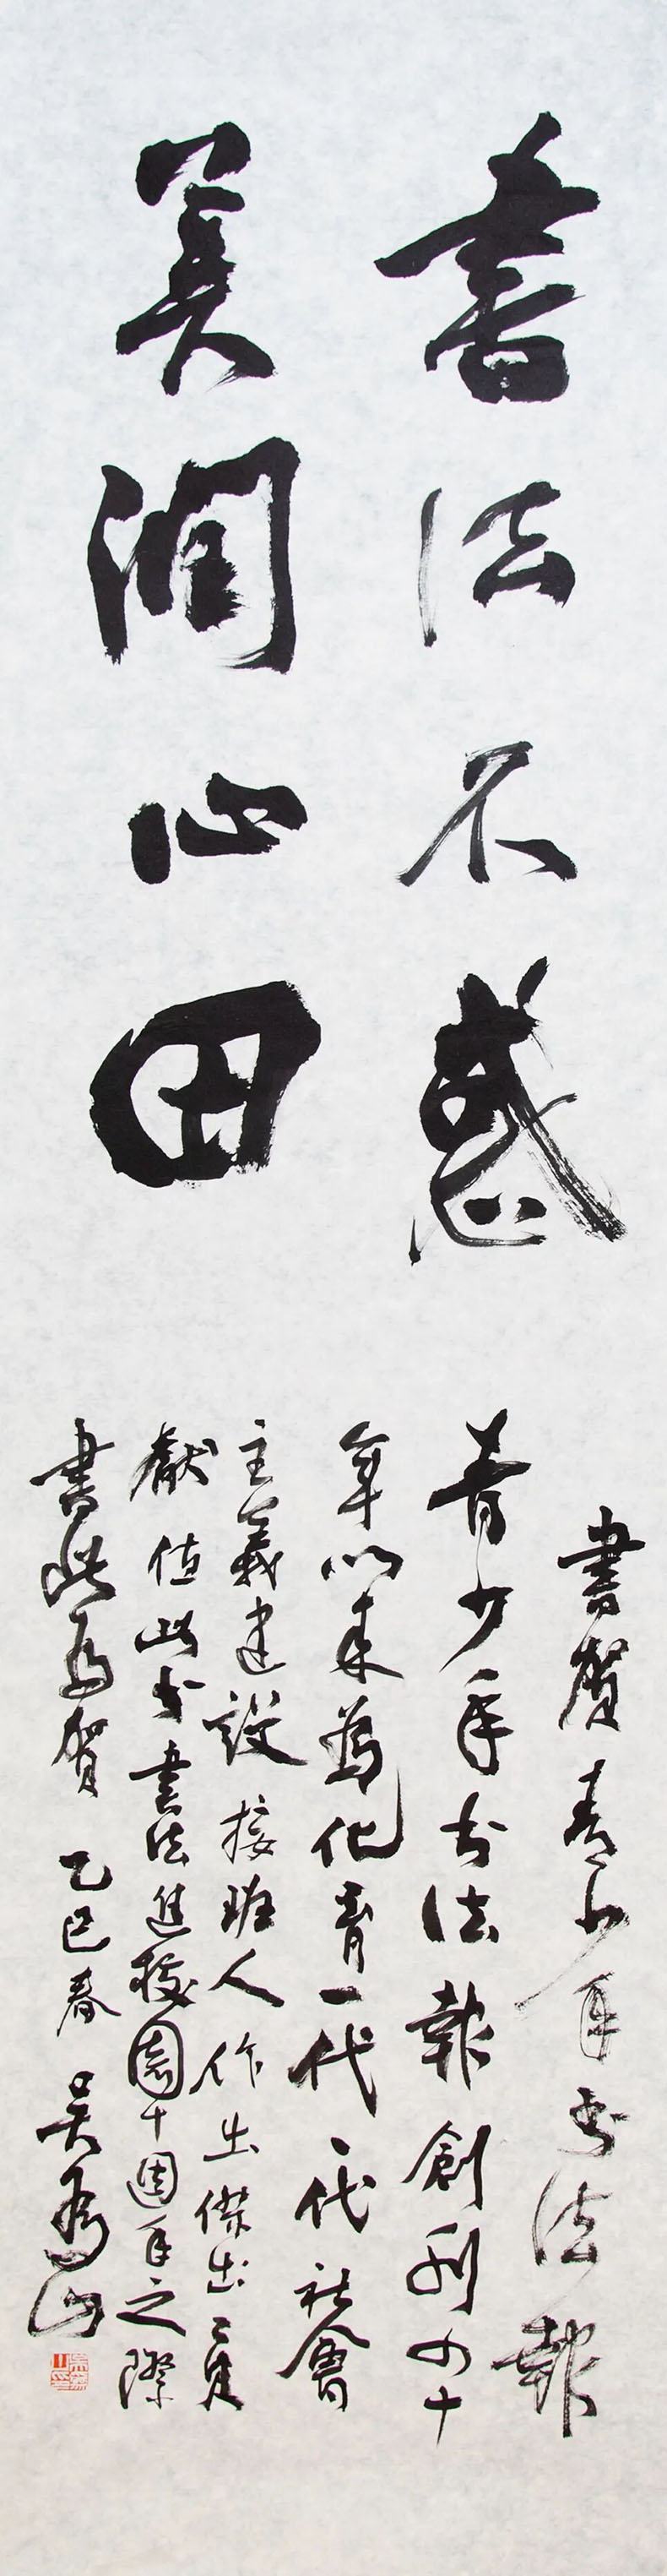 書法不惑
美潤心田
書賀青少年书法報
青少年书法報創刊四十
年以来為化育一代一代社會
主義建設接班人作出傑出貢
獻值此書法進校園十周年之際
書此為賀 乙巳春 吳為山